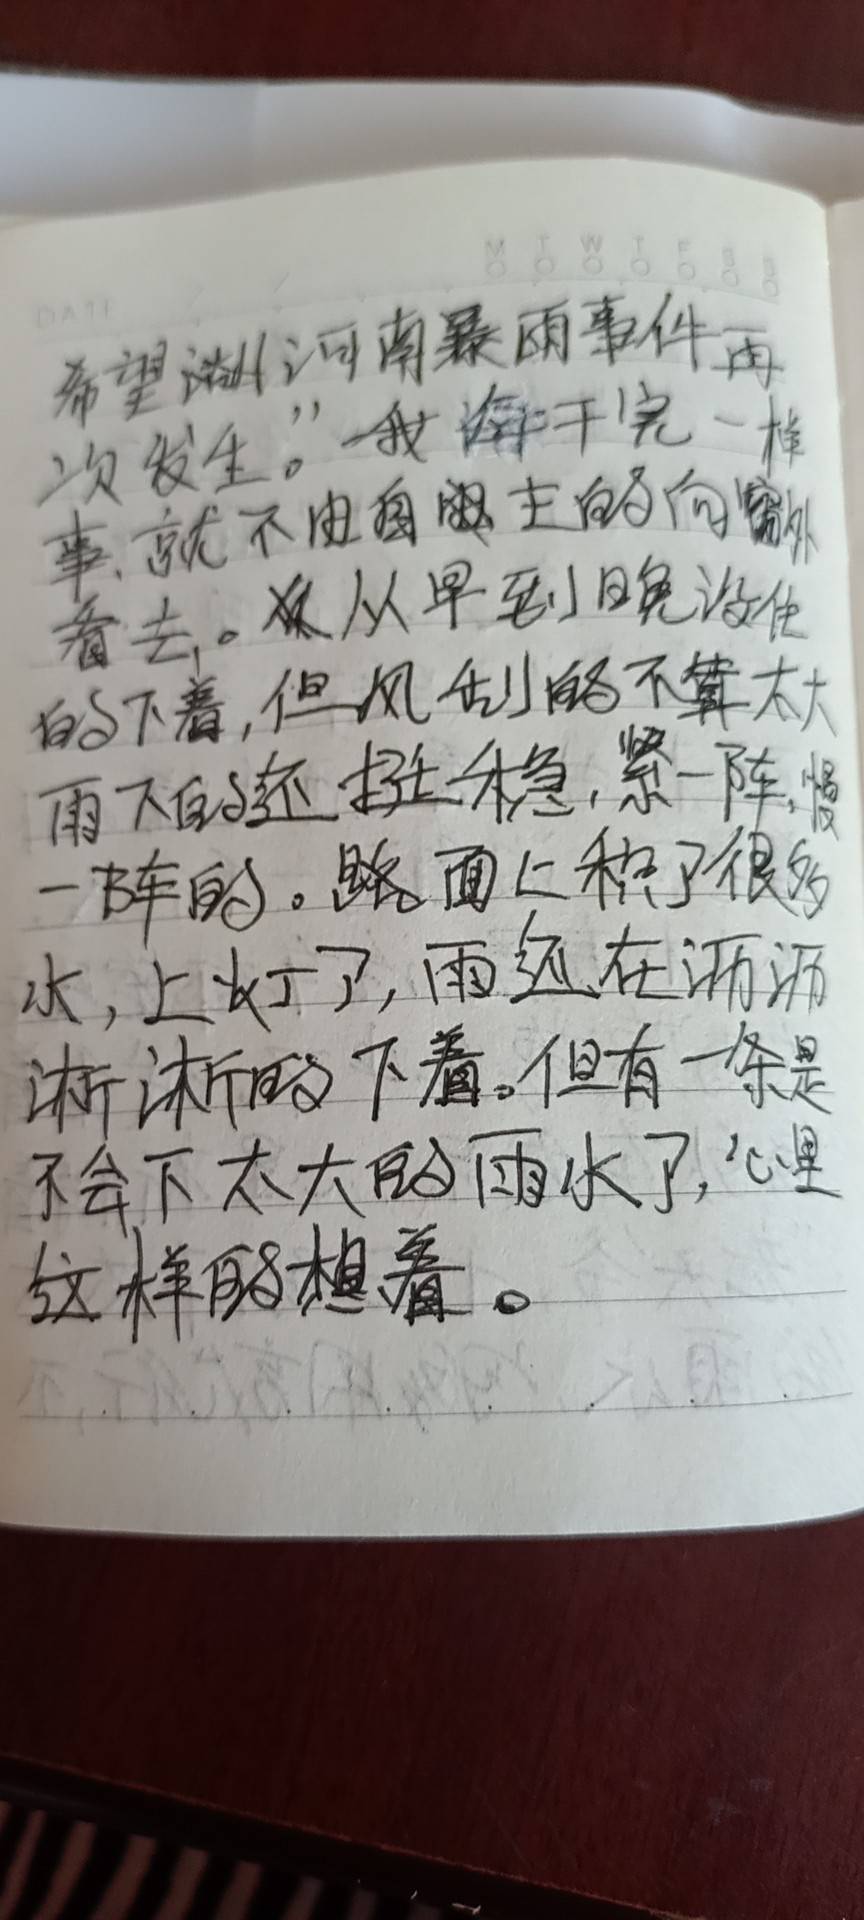 M T W T F S S
DATE
希望 河南暴雨事件再
次发生。”我 每干完一样
事、就不由自 主的向窗外
看去。 从早到晚没住
的下着,但风刮的不算太大
雨下的还挺稳,紧一阵,慢
一阵的。路面上积了很多
水,上灯了,雨还在沥沥
淅淅的下着。但有一条是
不会下太大的雨水了,心里
这样的想着。